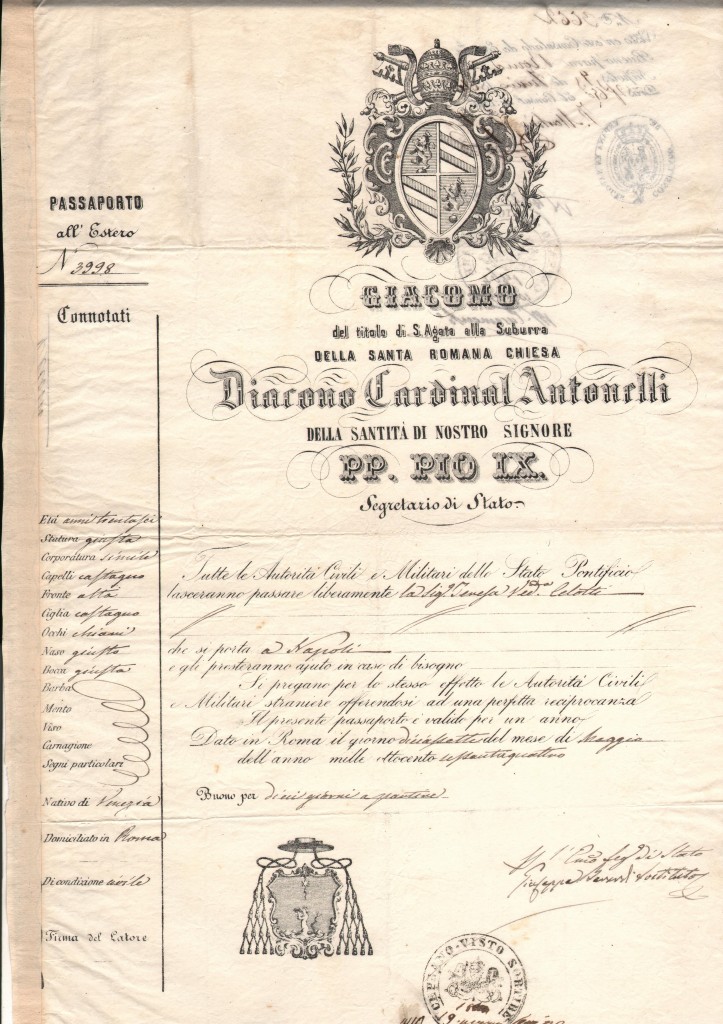 PASSAPORTO
all' Estero
N° 3998
Connotati
GIACOMO
del titolo di S. Agata alla Suburra
DELLA SANTA ROMANA CHIESA
Diacono Cardinal Antonelli
DELLA SANTITÀ DI NOSTRO SIGNORE
PP. PIO IX.
Segretario di Stato
Età anni trentasei
Statura giusta
Corporatura simile
Capelli castagno
Fronte alta
Ciglia castagno
Occhi chiari
Naso giusto
Bocca giusta
Barba
Mento
Viso
Carnagione
Segni particolari
Nativo di Venezia
Domiciliato in Roma
Di condizione civile
Firma del Latore
Tutte le Autorità Civili e Militari dello Stato Pontificio
lasceranno passare liberamente la Sig. Teresa Ved.a
che si porta a Napoli
e gli presteranno ajuto in caso di bisogno
Si pregano per lo stesso effetto le Autorità Civili
e Militari straniere offerendosi ad una perfetta reciprocanza
Il presente passaporto è valido per un anno
Dato in Roma il giorno diciassette del mese di Maggio
dell'anno mille ottocento
Buono per dieci giorni a partire
Seg. di Stato
Giuseppe Sostituto
VISTO SORTIRE